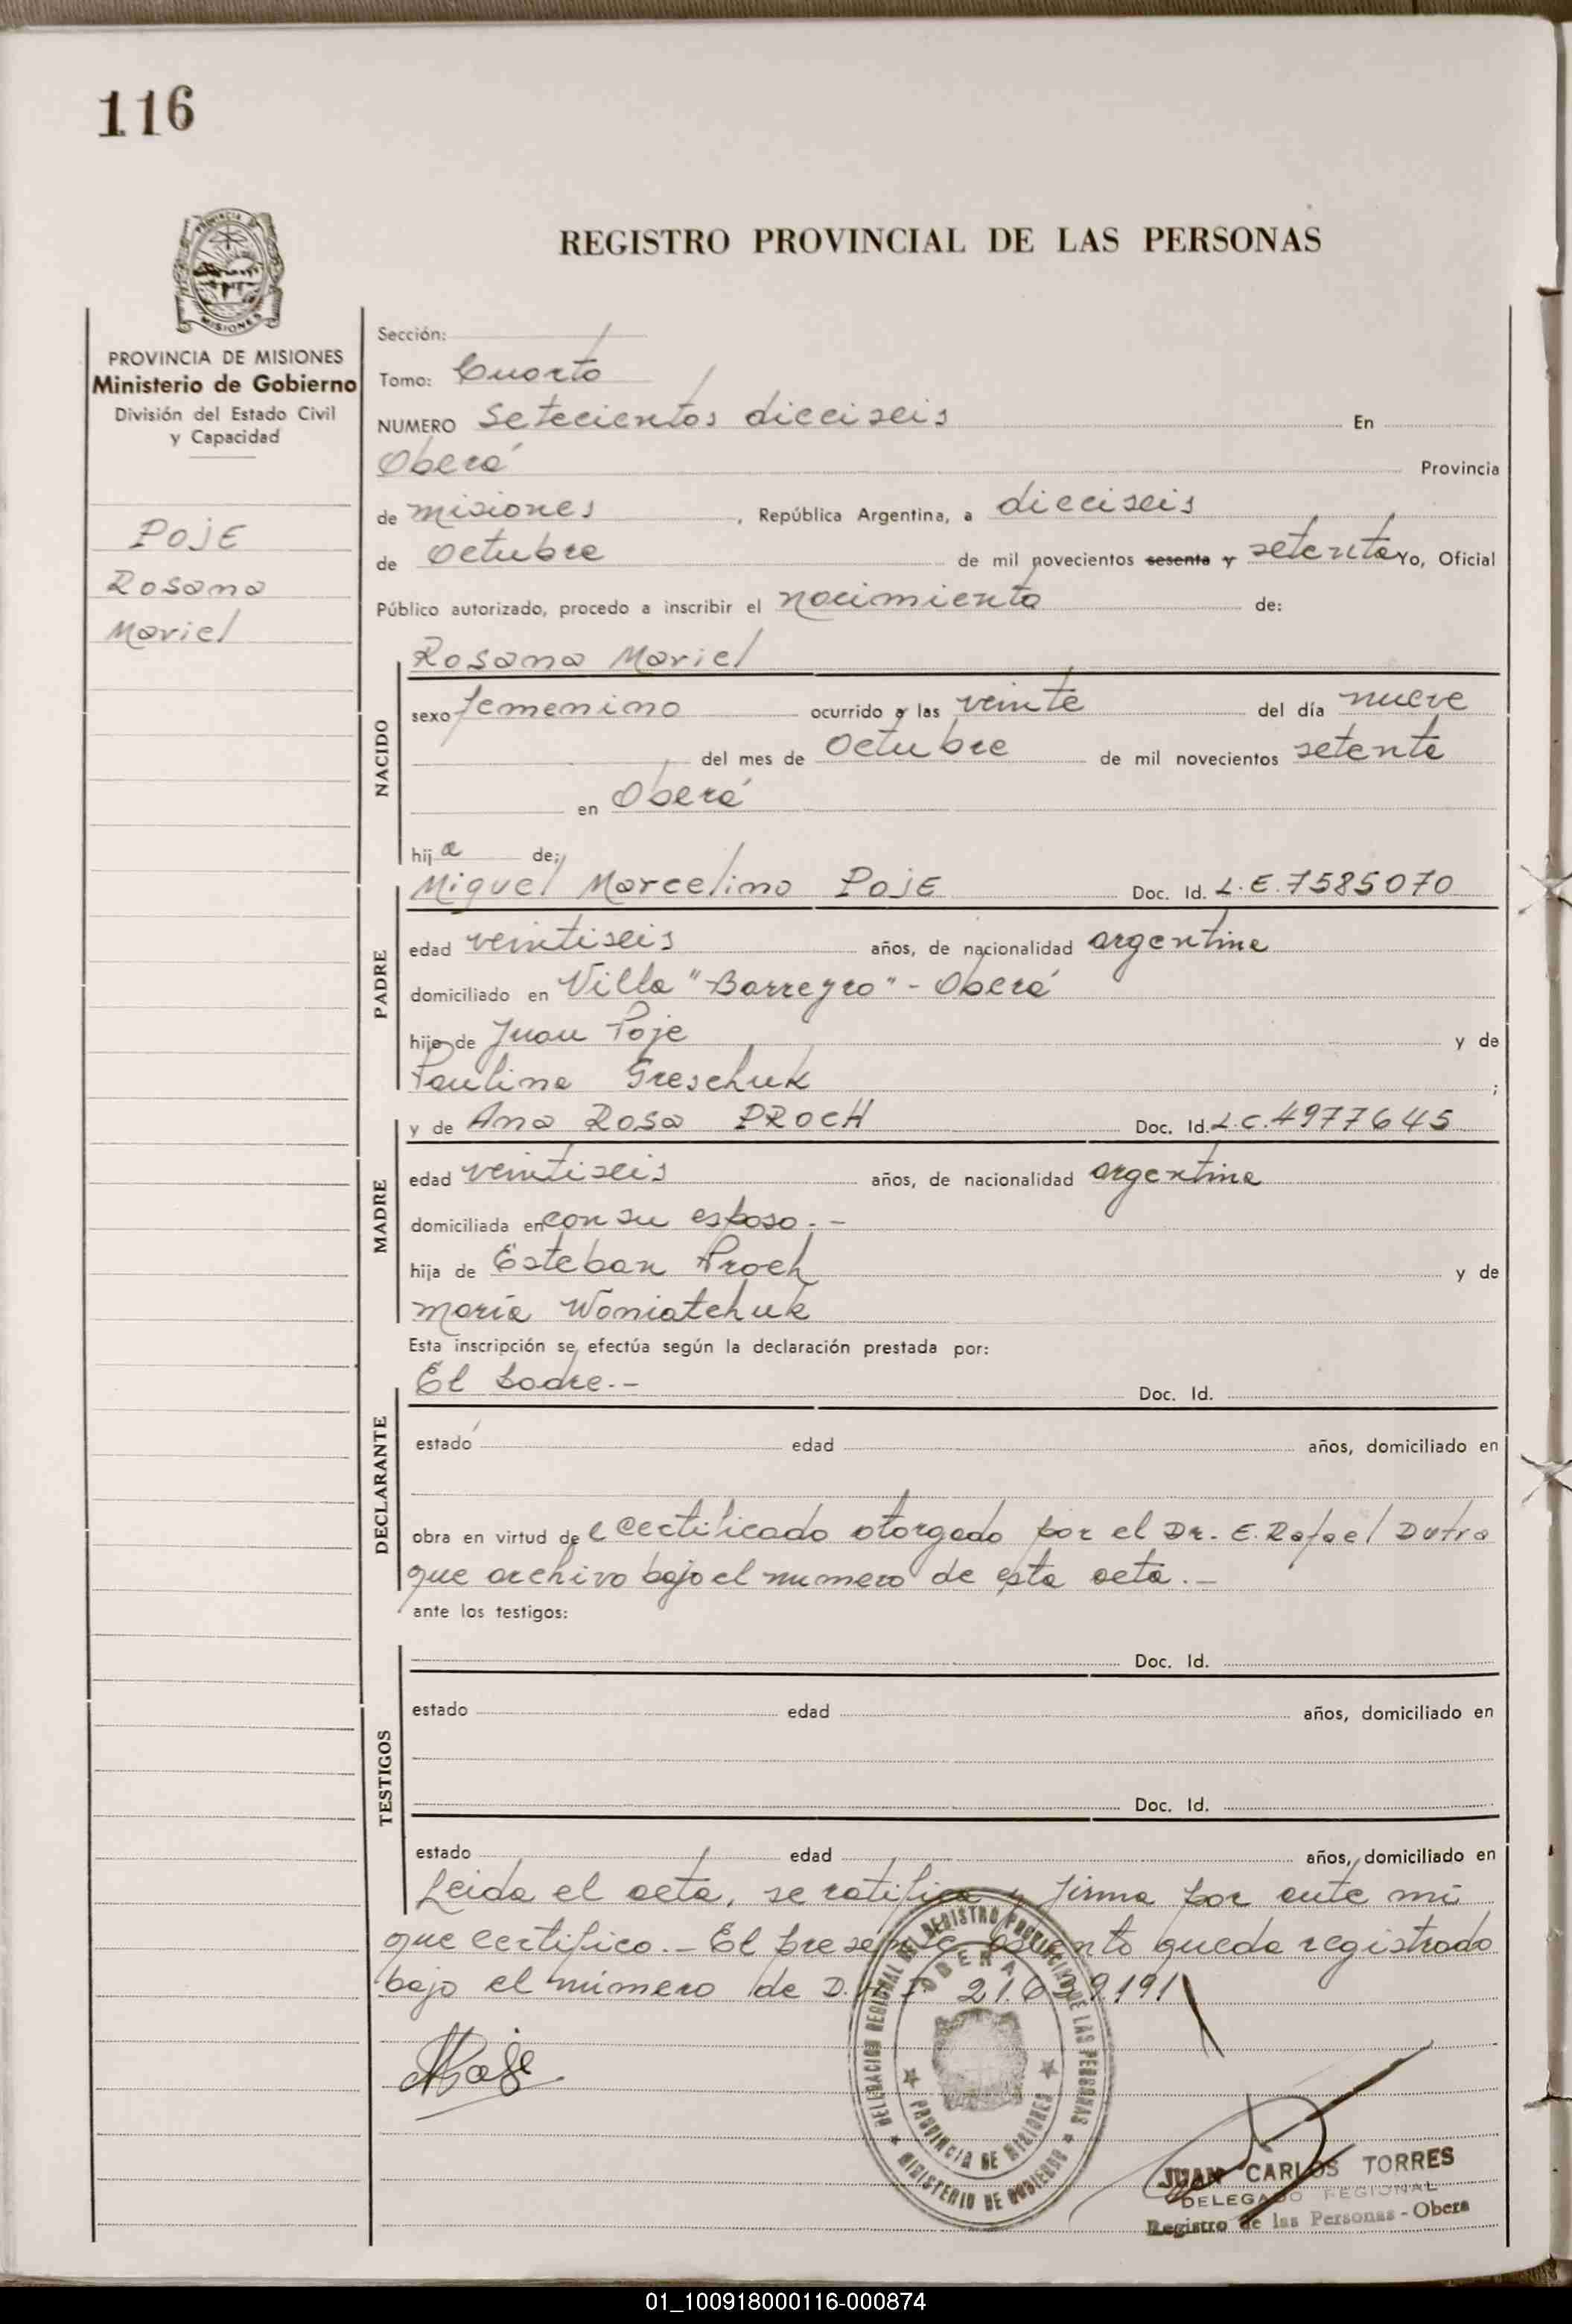 116
PROVINCIA DE MISIONES
REGISTRO PROVINCIAL DE LAS PERSONAS
PROVINCIA DE MISIONES
Ministerio de Gobierno
División del Estado Civil
y Capacidad
POJE
Rosana
Mariel
Sección:
Tomo: Cuarto
NUMERO Setecientos dieciseis En
Oberá Provincia
de misiones, República Argentina, a dieciseis
de octubre de mil novecientos sesenta y setenta Yo, Oficial
Público autorizado, procedo a inscribir el nacimiento de:
Rosana Mariel
NACIDO
sexo femenino ocurrido a las veinte del día nueve
del mes de octubre de mil novecientos setenta
en Oberá
hija de:
Miguel Marcelino POJE Doc. Id. L.E. 7585070
PADRE
edad veintiseis años, de nacionalidad argentina
domiciliado en Villa "Barreyro" - Oberá
hijo de Juan Poje y de
Paulina Greschuk ;
y de Ana Rosa PROCH Doc. Id. L.C. 4977645
MADRE
edad veintiseis años, de nacionalidad argentina
domiciliada en con su esposo.-
hija de Esteban Proch y de
maría Woniatchuk
Esta inscripción se efectúa según la declaración prestada por:
El padre.- Doc. Id.
DECLARANTE
estado edad años, domiciliado en
obra en virtud del certificado otorgado por el Dr. E. Rafael Dutra
que archivo bajo el numero de esta acta.-
ante los testigos:
Doc. Id.
TESTIGOS
estado edad años, domiciliado en
Doc. Id.
estado edad años, domiciliado en
Leida el acta, se ratifica y firma por ante mi
que certifico.- El presente asiento queda registrado
bajo el número de 21.639.191
DELEGACION REGIONAL DEL REGISTRO PROVINCIAL DE LAS PERSONAS
OBERA
PROVINCIA DE MISIONES
MINISTERIO DE GOBIERNO
JUAN CARLOS TORRES
DELEGADO REGIONAL
Registro de las Personas - Obera
01_100918000116-000874